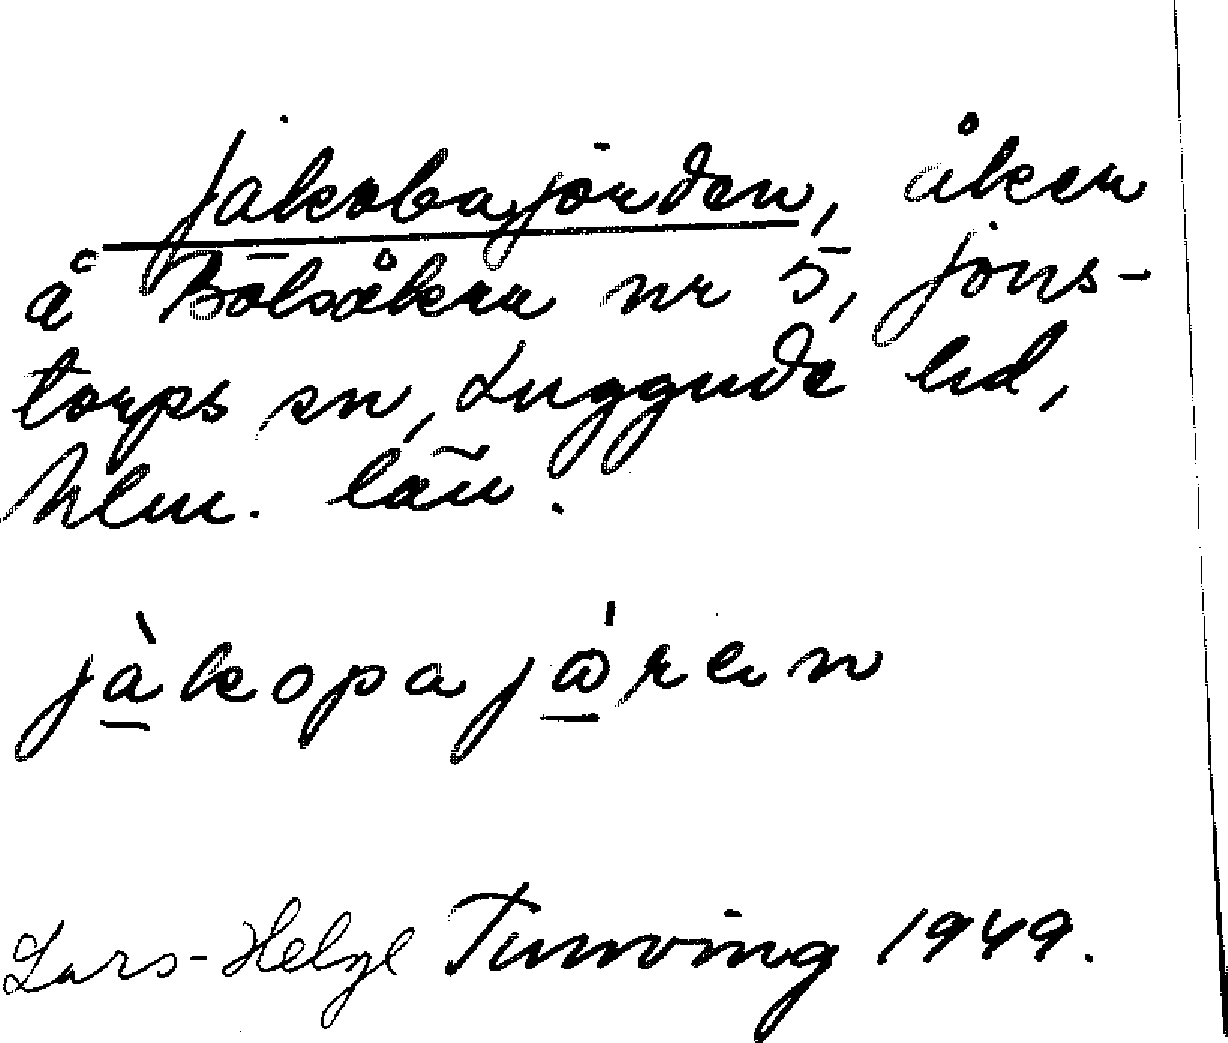 Jakobajorden, åker
å Bölsåkra nr 5, Jons-
torps sn, Luggude hd,
Mlm. län.
jàkopajǿren
Lars-Helge Tunving 1949.